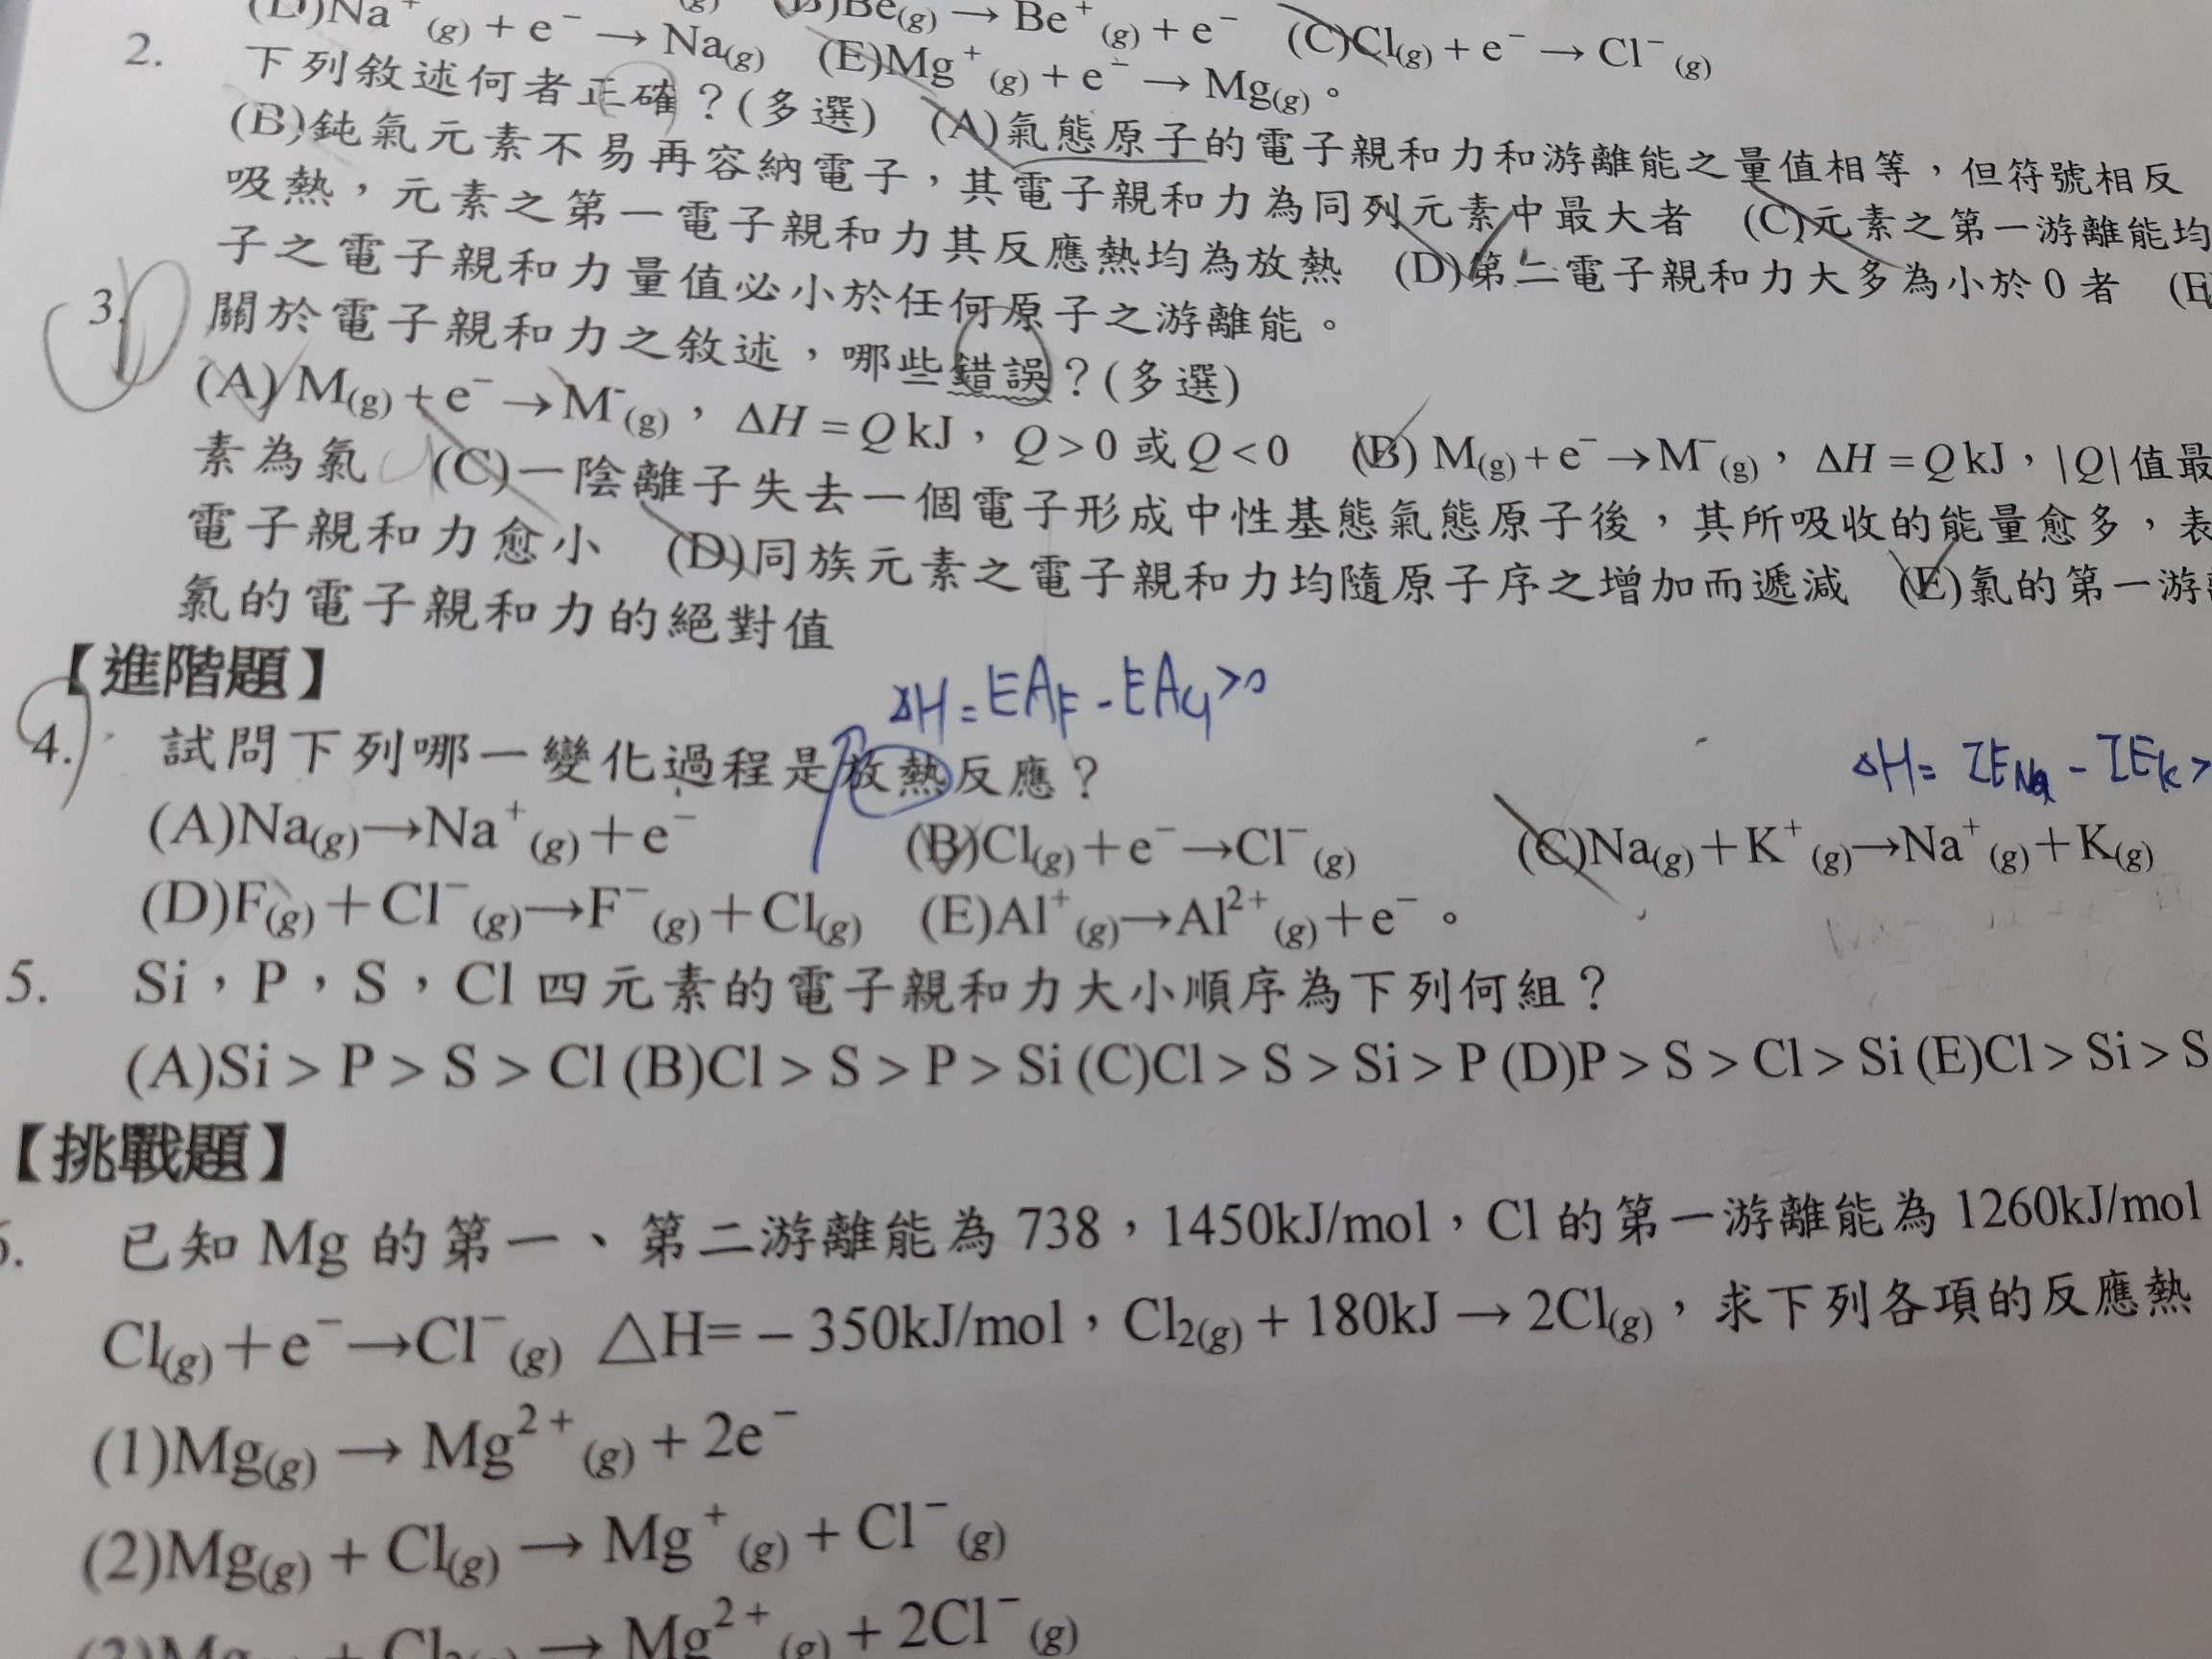 (D)Na⁺(g) + e⁻ → Na(g) (B)Be(g) → Be⁺(g) + e⁻ (C)Cl(g) + e⁻ → Cl⁻(g)
(E)Mg⁺(g) + e⁻ → Mg(g)。
2. 下列敘述何者正確？(多選) (A)氣態原子的電子親和力和游離能之量值相等，但符號相反
(B)鈍氣元素不易再容納電子，其電子親和力為同列元素中最大者 (C)元素之第一游離能均
吸熱，元素之第一電子親和力其反應熱均為放熱 (D)第二電子親和力大多為小於0者 (E
子之電子親和力量值必小於任何原子之游離能。
3. 關於電子親和力之敘述，哪些錯誤？(多選)
(A) M(g) + e⁻ → M⁻(g)，ΔH = Q kJ，Q > 0 或 Q < 0 (B) M(g) + e⁻ → M⁻(g)，ΔH = Q kJ，|Q| 值最
素為氯 (C)一陰離子失去一個電子形成中性基態氣態原子後，其所吸收的能量愈多，表
電子親和力愈小 (D)同族元素之電子親和力均隨原子序之增加而遞減 (E)氯的第一游
氯的電子親和力的絕對值
【進階題】
ΔH = EA_F - EA_Cl > 0
4. 試問下列哪一變化過程是放熱反應？
ΔH = IE_Na - IE_K >
(A)Na(g)→Na⁺(g)+e⁻ (B)Cl(g)+e⁻→Cl⁻(g) (C)Na(g)+K⁺(g)→Na⁺(g)+K(g)
(D)F(g)+Cl⁻(g)→F⁻(g)+Cl(g) (E)Al⁺(g)→Al²⁺(g)+e⁻。
5. Si，P，S，Cl 四元素的電子親和力大小順序為下列何組？
(A)Si > P > S > Cl (B)Cl > S > P > Si (C)Cl > S > Si > P (D)P > S > Cl > Si (E)Cl > Si > S
【挑戰題】
6. 已知 Mg 的第一、第二游離能為 738，1450kJ/mol，Cl 的第一游離能為 1260kJ/mol
Cl(g)+e⁻→Cl⁻(g) △H= – 350kJ/mol，Cl₂(g) + 180kJ → 2Cl(g)，求下列各項的反應熱
(1)Mg(g) → Mg²⁺(g) + 2e⁻
(2)Mg(g) + Cl(g) → Mg⁺(g) + Cl⁻(g)
(3)Mg + Cl₂(g) → Mg²⁺(g) + 2Cl⁻(g)